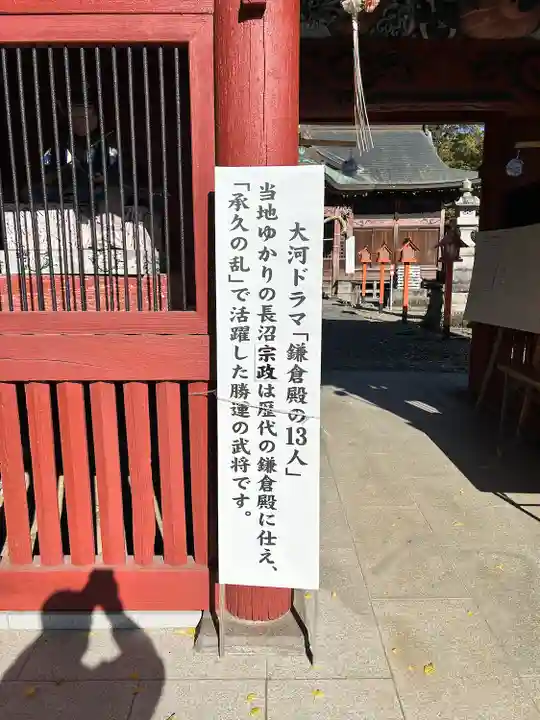 大河ドラマ「鎌倉殿の13人」
当地ゆかりの長沼宗政は歴代の鎌倉殿に仕え、
「承久の乱」で活躍した勝運の武将です。